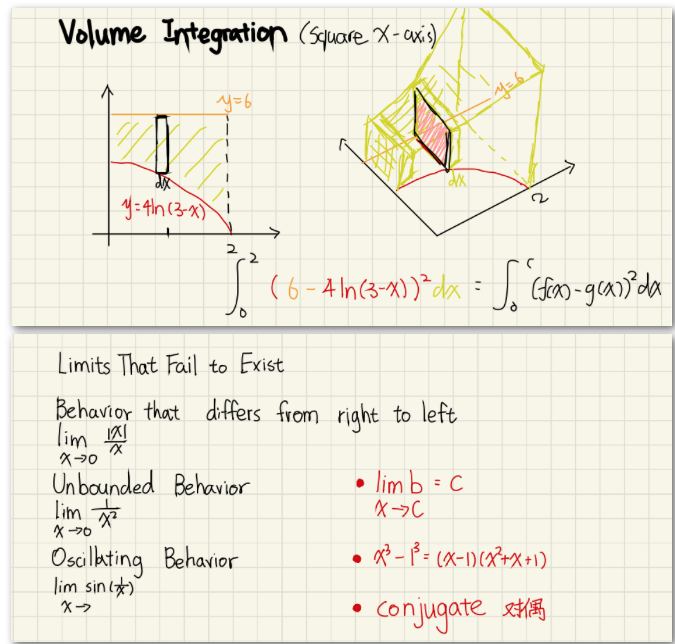 Volume Integration (Square X-axis)
y=6
y=6
dx
dx
y=4ln(3-x)
2
2
∫₀² (6-4ln(3-x))² dx = ∫₀ᶜ (f(x)-g(x))² dx
Limits That Fail to Exist
Behavior that differs from right to left
lim x→0 |x|/x
Unbounded Behavior
lim x→0 1/x²
Oscillating Behavior
lim x→ sin(1/x)
• lim x→c b = C
• x³-1³=(x-1)(x²+x+1)
• conjugate 对偶